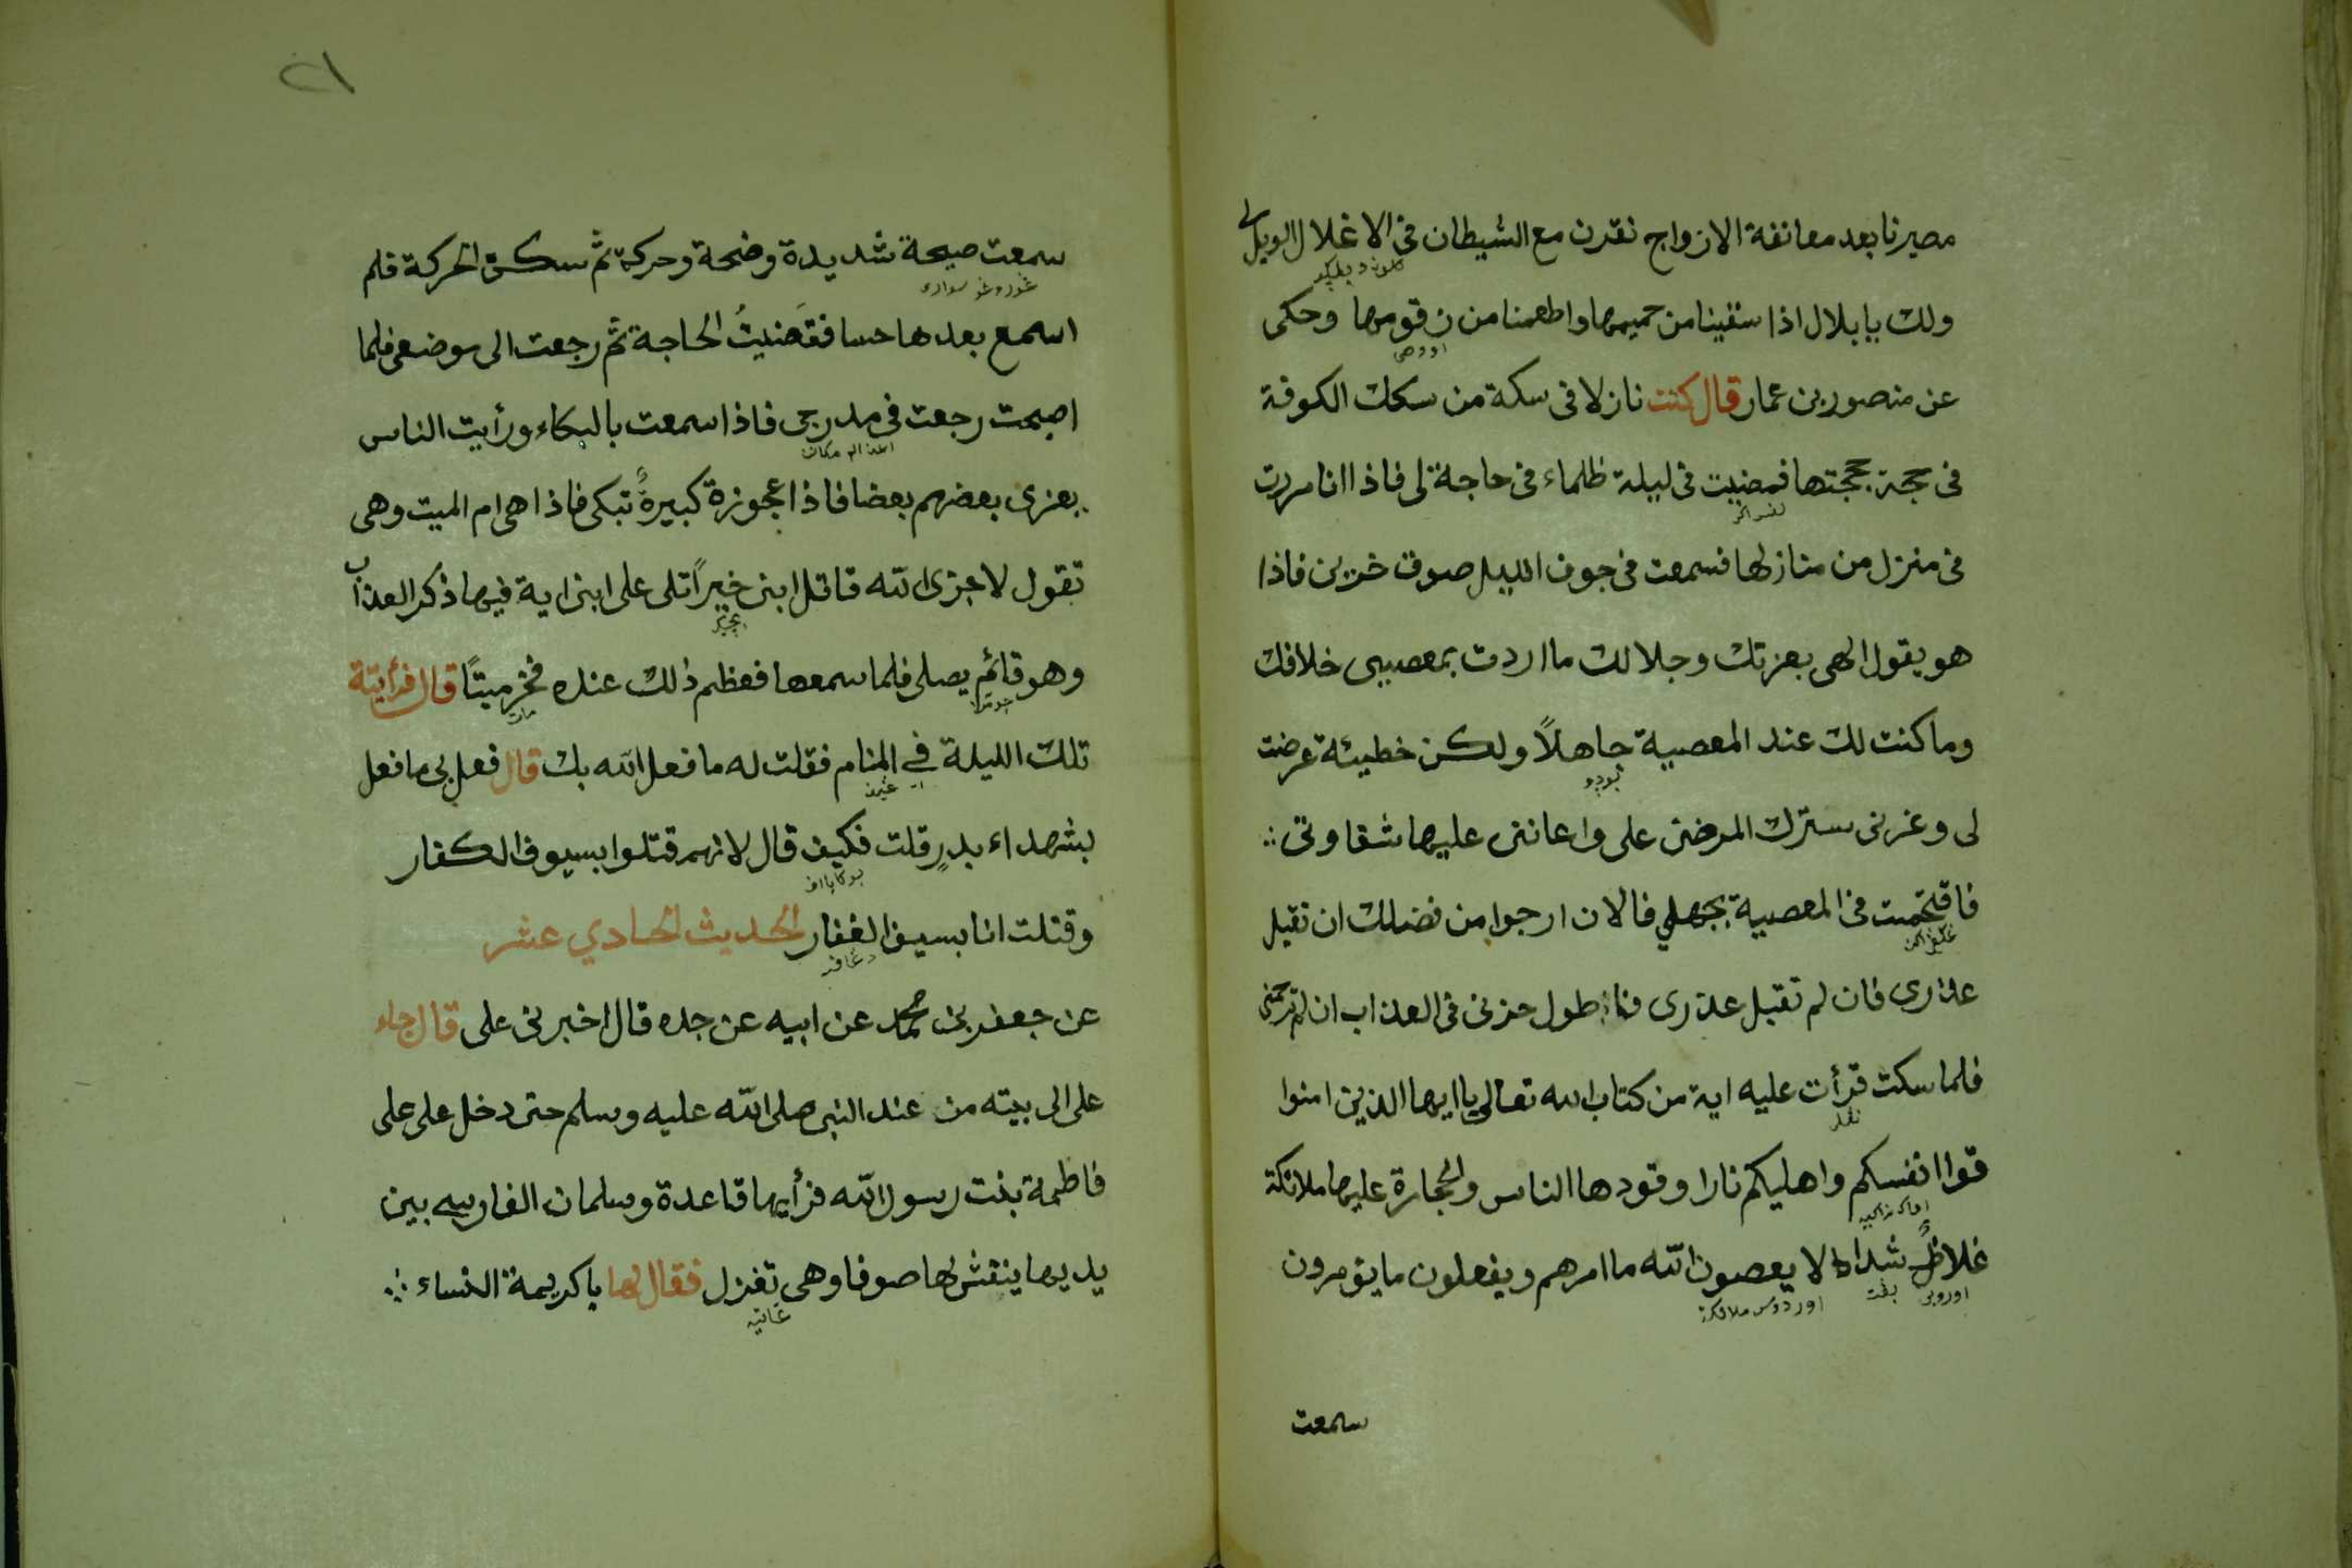 مصيرنا بعد معانقة الازواج نقرن مع الشيطان في الاغلال الويل لي
ولك يا بلال اذا سقينا من حميمها واطعمنا من زقومها وحكى
عن منصور بن عمار قال كنت نازلا في سكة من سكك الكوفة
في حجة حججتها فمضيت في ليلة ظلماء في حاجة لي فاذا انا مررت
في منزل من منازلها فسمعت في جوف الليل صوت حزين فاذا
هو يقول الهي بعزتك وجلالك ما اردت بمعصيتي خلافك
وما كنت لك عند المعصية جاهلاً ولكن خطيئة عرضت
لي وغرني سترك المرضى علي واعانتى عليها شقاوتي
فاقتحمت في المعصية بجهلي فالان ارجوا من فضلك ان تقبل
عذرى فان لم تقبل عذرى فما طول حزنى في العذاب ان لم ترحمني
فلما سكت قرأت عليه اية من كتاب الله تعالى يا ايها الذين امنوا
قوا انفسكم واهليكم نارا وقودها الناس والحجارة عليها ملائكة
غلاظ شداد لا يعصون الله ما امرهم ويفعلون ما يؤمرون
سمعت
٢١
سمعت صيحة شديدة وضحة وحركة ثم سكن الحركة فلم
اسمع بعدها حسا فقضيتُ الحاجة ثم رجعت الى موضعي فلما
اصبحت رجعت في مدرجى فاذا سمعت بالبكاء ورأيت الناس
يعزى بعضهم بعضا فاذا عجوزة كبيرةً تبكى فاذا هي ام الميت وهي
تقول لا جزى الله قاتل ابنى خيراً تلى على ابنى اية فيها ذكر العذاب
وهو قائم يصلي فلما سمعها فعظم ذلك عنده فخر ميتًا قال فرأيته
تلك الليلة في المنام فقلت له ما فعل الله بك قال فعل بي ما فعل
بشهداء بدرٍ قلت فكيف قال لانهم قتلوا بسيوف الكفار
وقتلت انا بسيف الغفار الحديث الحادي عشر
عن جعفر بن محمد عن ابيه عن جده قال اخبرني على قال جاء
على الى بيته من عند النبى صلى الله عليه وسلم حتى دخل على على
فاطمة بنت رسول الله فرأيها قاعدة وسلمان الفارسي بين
يديها ينقش لها صوفا وهي تغزل فقال لها يا كريمة النساء